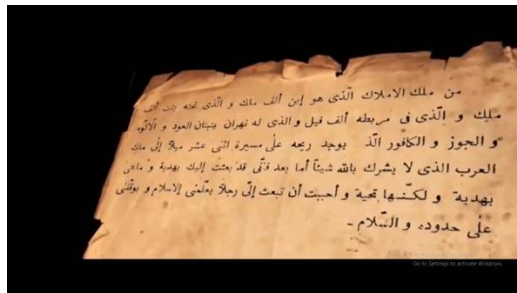 من ملك الاملاك الّذى هو إبن ألف ملك و الّذى تحته بنت ألف
ملك و الّذى فى مربطه ألف فيل و الذى له نهران ينبتان العود و الألوّه
و الجوز و الكافور الّذ يوجد ريحه على مسيرة اثنى عشر ميلاً إلى ملك
العرب الذى لا يشرك بالله شيئاً أما بعد فانّى قد بعثت إليك بهدية و ماهى
بهدية و لكنّها تحية و أحببت أن تبعث إلىّ رجلاً يعلّمنى الإسلام و يوقفنى
على حدوده و السّلام -
Go to Settings to activate Windows.